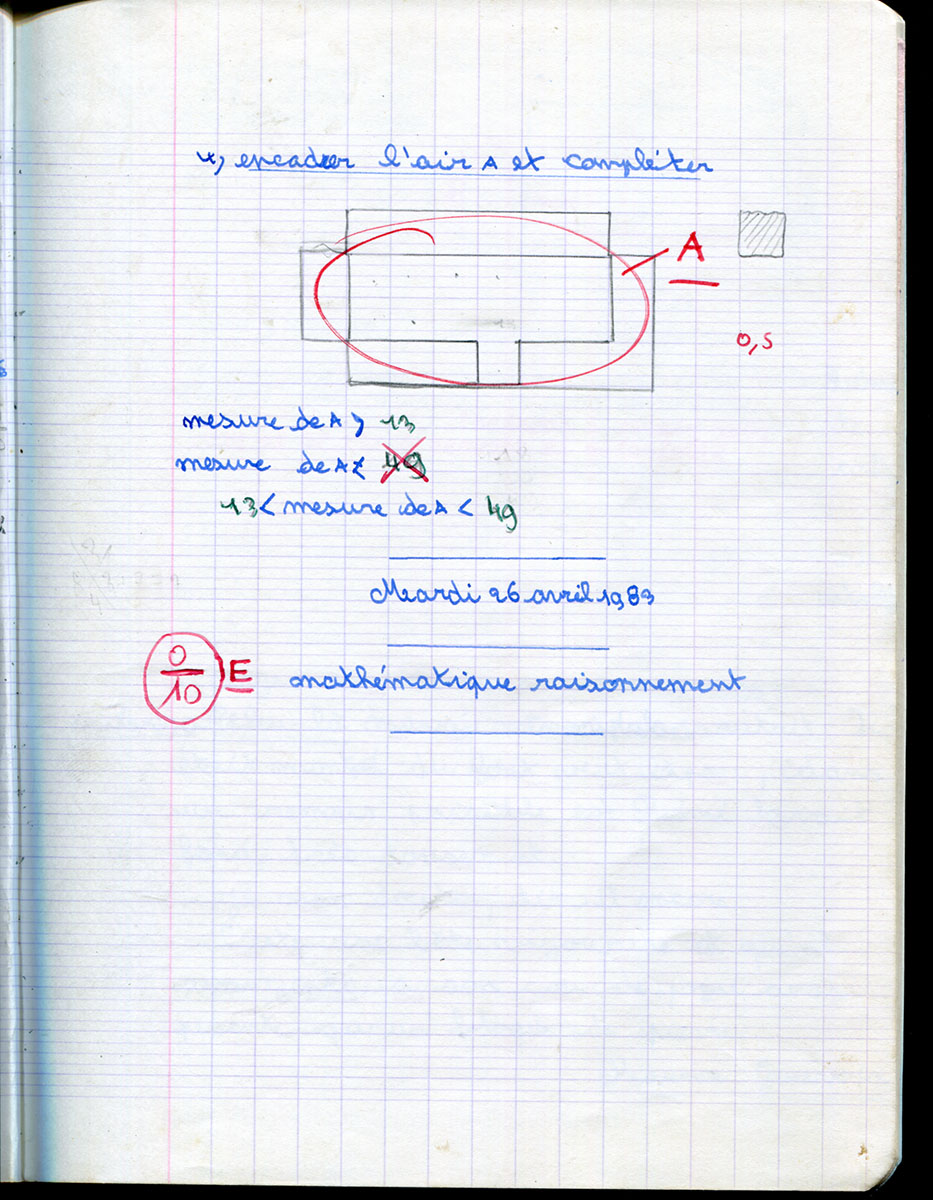 4) encadrer l'air A et compléter
A
0,5
mesure de A > 13
mesure de A < 49
13 < mesure de A < 49
Mardi 26 avril 1983
0/10 E mathématique raisonnement